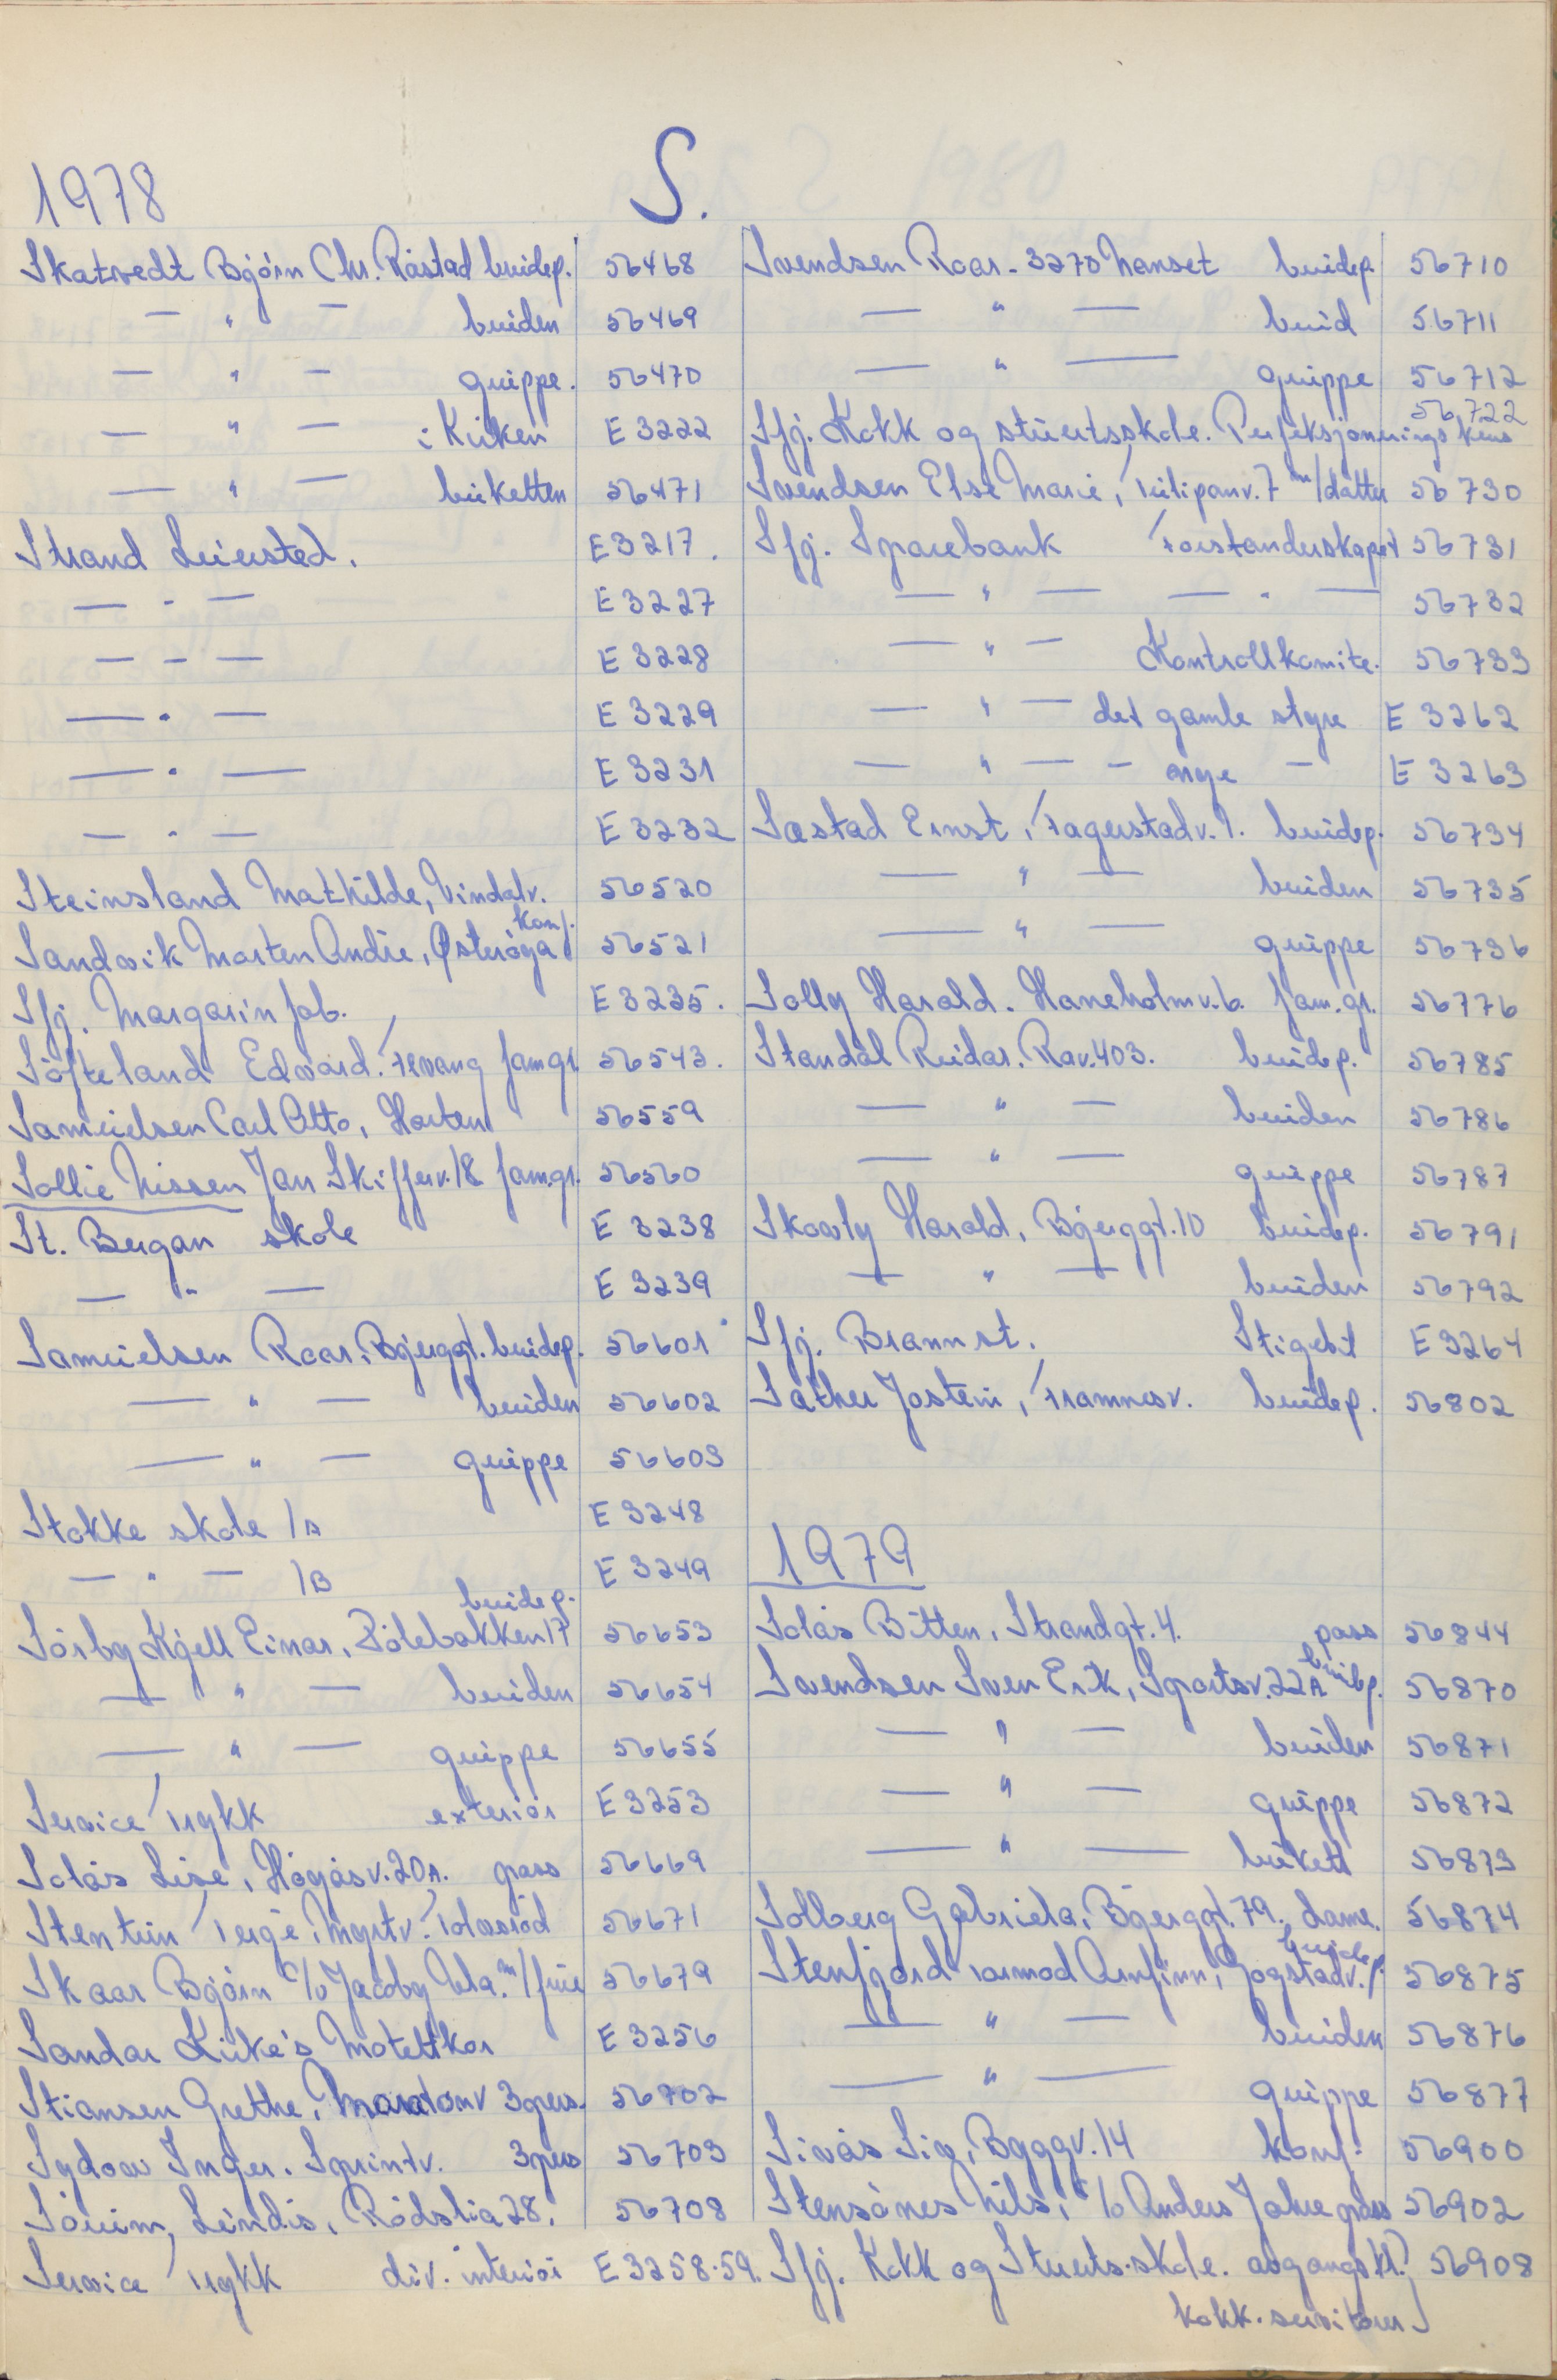 S.
1978
Skatvedt Bjørn Chr. Råstad brudep. 56468
— " — bruden 56469
— " — gruppe. 56470
— " — i Kirken E 3222
— " — buketten 56471
Strand Leiersted. E 3217.
— " — E 3227
— - — E 3228
— " — E 3229
— " — E 3231
— " — E 3232
Steinsland Mathilde, Vindalv. 56520
Sandvik Morten André, Østerøya konf. 56521
Sfj. Margarinfab. E 3235.
Søfteland Edvard. Tevang fam.gr. 56543.
Samuelsen Carl Otto, Horten 56559
Sollie Nissen Jan Skifferv. 18 fam.gr. 56560
St. Bergan skole E 3238
— " — E 3239
Samuelsen Roar, Bjerggt. brudep. 56601
— " — bruden 56602
— " — gruppe 56603
Stokke skole 1A E 3248
— " — 1B E 3249
Sørby Kjell Einar, Pølebakken 17 brudep. 56653
— " — bruden 56654
— " — gruppe 56655
Service Trykk exteriør E 3253
Solås Lise, Høgåsv. 20A. pass 56669
Stentun Terje, Myrtv. Tolvsrød 56671
Skaar Bjørn c/o Jacoby Ula. m/frue 56679
Sandar Kirke's Motettkor E 3256
Stiansen Grethe, Maratonv 3 pers. 56702
Sydow Inger. Sprintv. 3 pers 56703
Sørum, Lindis, Rødslia 28. 56708
Service Trykk div. interiør E 3258-59.
Svendsen Roar - 3270 Nanset brudep. 56710
— " — brud 56711
— " — gruppe 56712
Sfj. Kokk og stuertsskole. Perfeksjonerings kurs 56722
Svendsen Else Marie, Tulipanv. 7 m/datter 56730
Sfj. Sparebank Forstanderskapet 56731
— " — — " — 56732
— " — Kontrollkomite. 56733
— " — det gamle styre E 3262
— " — - nye - E 3263
Sæstad Ernst, Fagerstadv. 1. brudep. 56734
— " — bruden 56735
— " — gruppe 56736
Solly Harald. Haneholmv. 6. fam.gr. 56776
Standal Reidar. Rav. 403. brudep. 56785
— " — bruden 56786
— " — gruppe 56787
Skovly Harald, Bjerggt. 10 brudep. 56791
— " — bruden 56792
Sfj. Brannst. Stigebil E 3264
Sather Jostein, Framnesv. brudep. 56802
1979
Solås Bitten, Strandgt. 4. pass 56844
Svendsen Sven Erik, Sportsv. 22A brudep. 56870
— " — bruden 56871
— " — gruppe 56872
— " — bukett 56873
Solberg Gabriela, Bjerggt. 79. dame. 56874
Stenfjord Tormod Arnfinn, Gogstadv. brudep. 56875
— " — bruden 56876
— " — gruppe 56877
Sivås Siv, Byggv. 14 konf. 56900
Stensønes Nils, c/o Anders Jahre pass 56902
Sfj. Kokk og Stuerts.skole. avgangskl. 56908
kokk. servitører